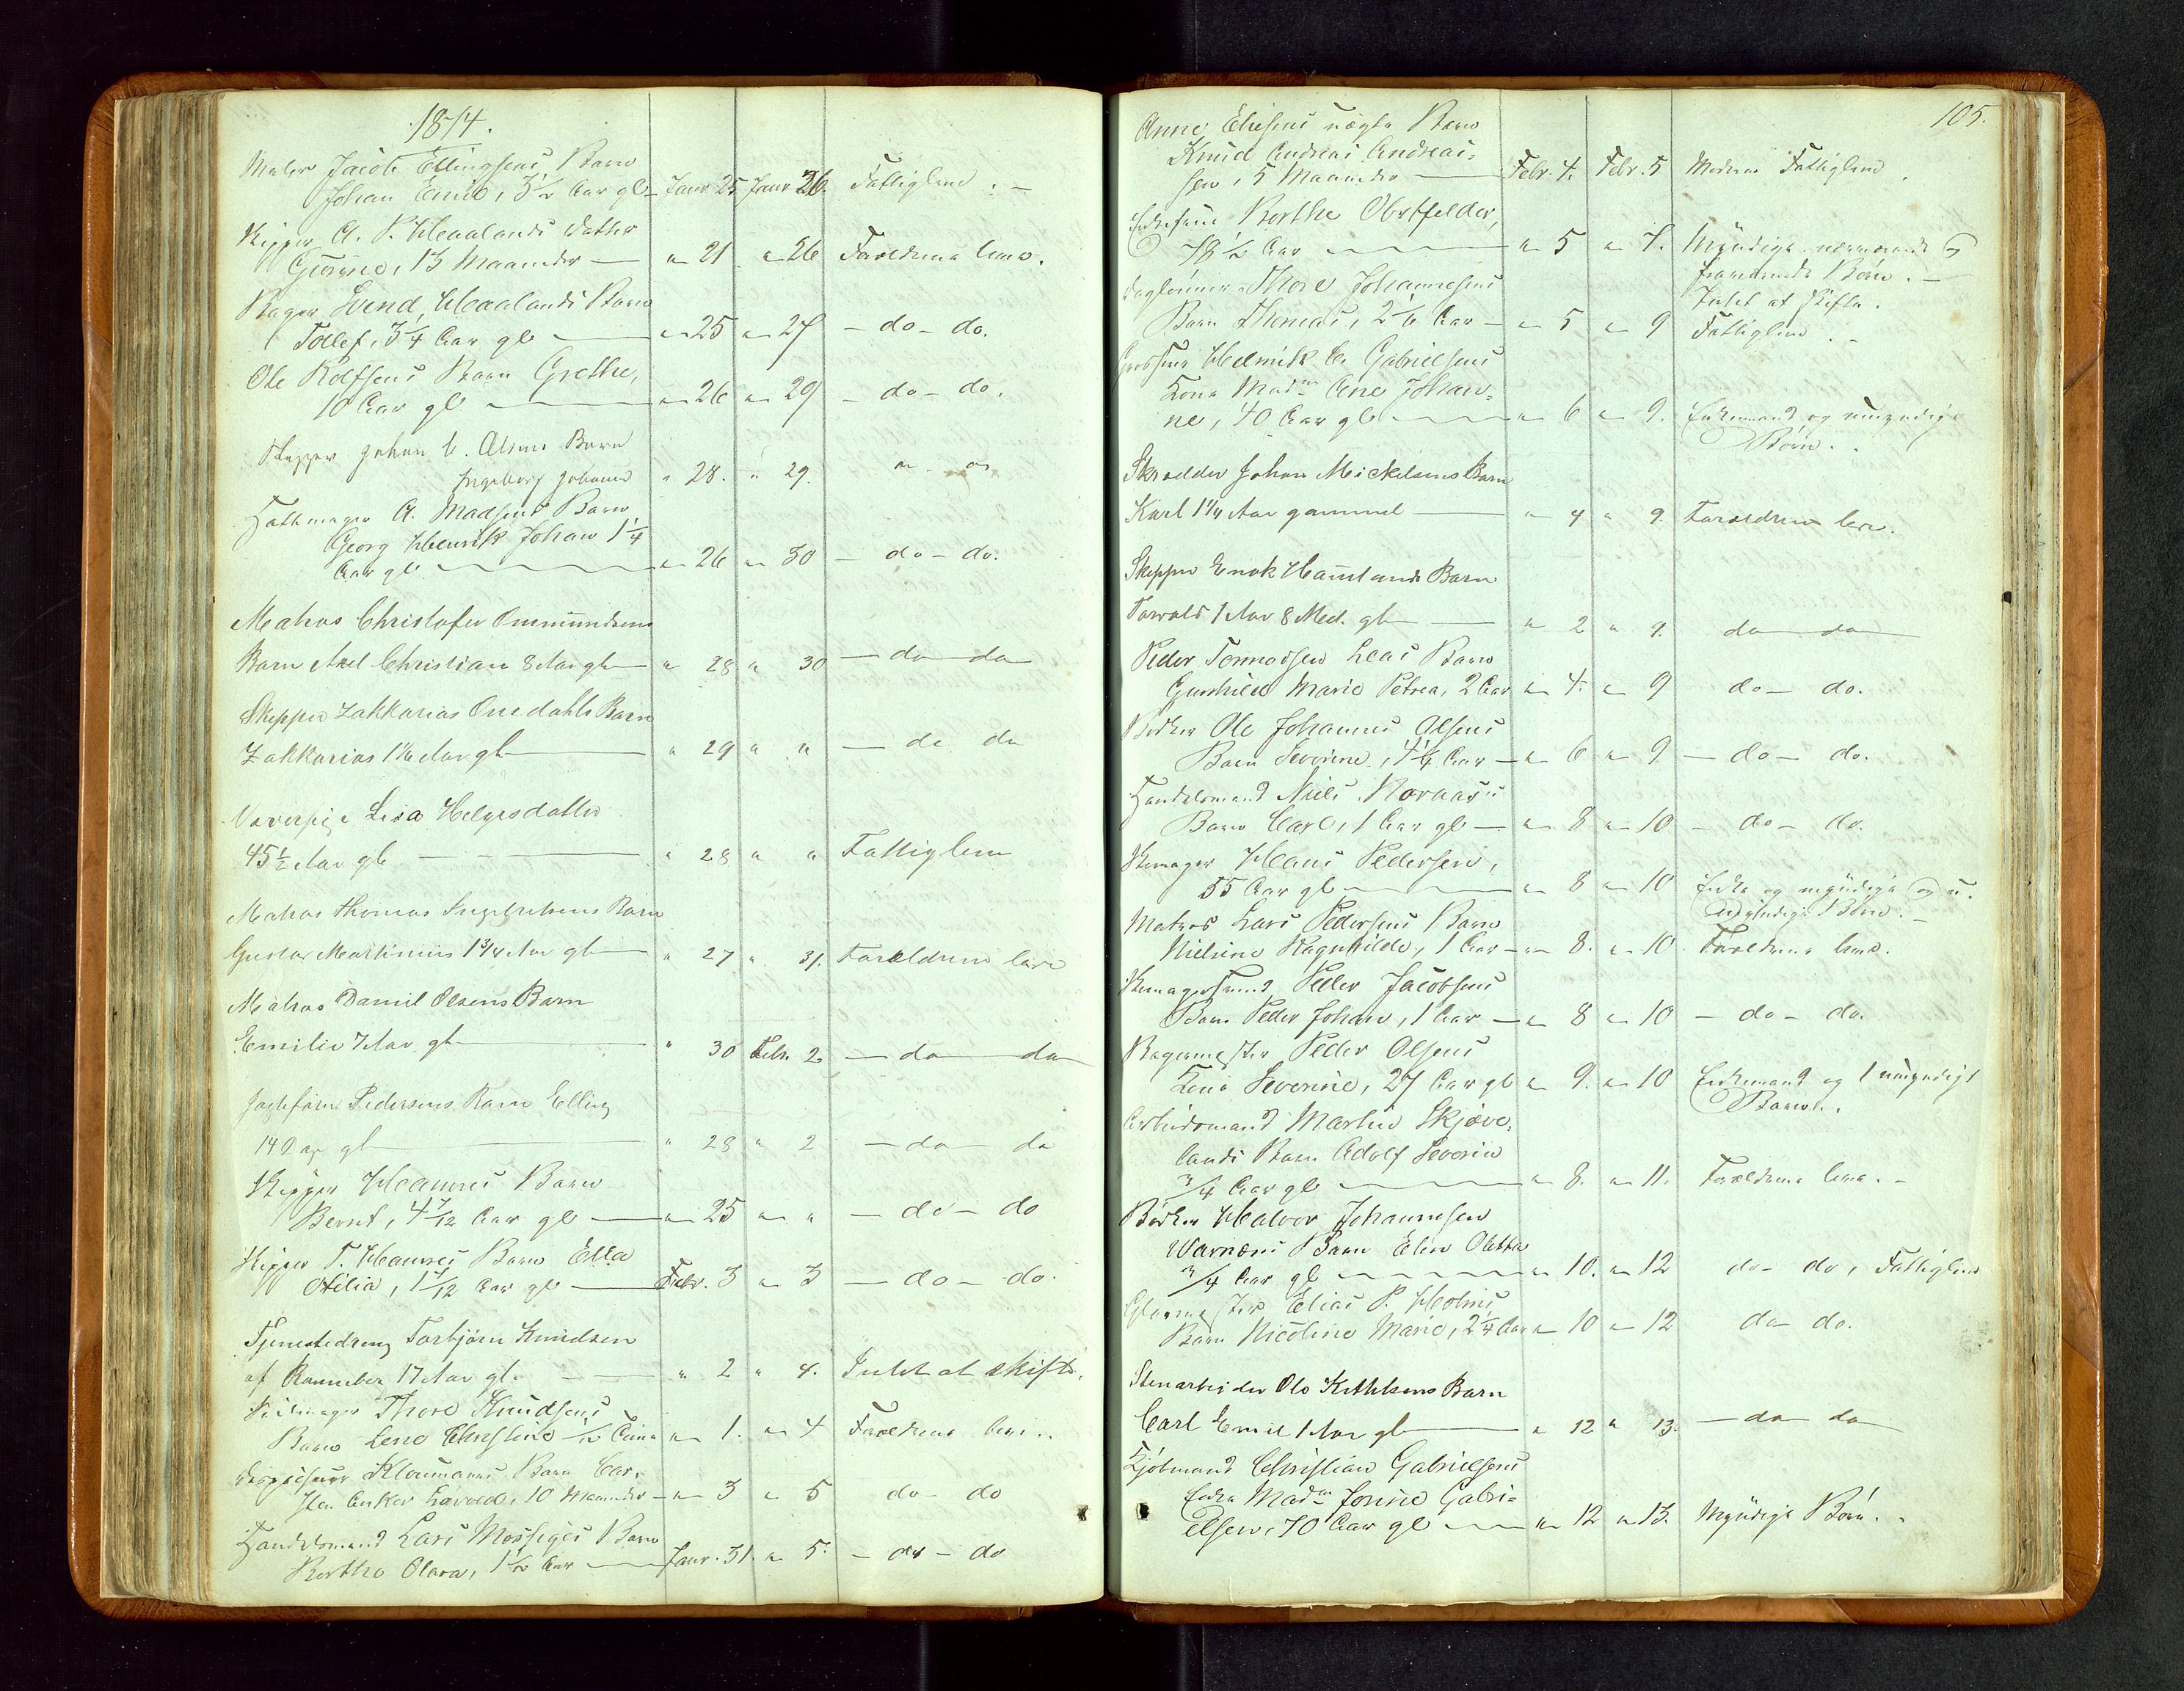 1874.
Maler Jacob Ellingsens Barn
Johan Emil, 3½ Aar gl. Janr 25 Janr 26. Fattiglem. —
Skipper A. P. Haalands Datter
Gurine, 13 Maaneder — " 21 " 26 Forældrene leve.
Bager Svend Haalands Barn
Tollef, 3¼ Aar gl — " 25 " 27 — do — do.
Ole Rolfsens Barn Grethe,
10 Aar gl — " 26 " 29 — do — do.
Skipper Johan C. Olsens Barn
Ingeborg Johanne " 28. " 29.
A. Madsens Barn
Georg Henrik Johan 1¼
Aar gl. — " 26 " 30 — do — do.
Matros Christofer Ommundsens
Barn Axel Christian 8 Aar gl — " 28 " 30 — do do
Skipper Zakkarias Ousdahls Barn
Zakkarias 1½ Aar gl — " 29 " " — do do
Lisa Helgesdatter
45½ Aar gl — " 28 " " Fattiglem
Matros Thomas Ingebretsens Barn
Gustav Martinius 1¾ Aar gl — " 27 " 31. Forældrene leve
Matros Daniel Olsens Barn
Emilie 7 Aar gl — " 30 Febr. 2 — do do
Pedersens Barn Elling
14 Dage gl — " 28 " 2 — do do
Skipper Hamres Barn
Bernt, 4 7/12 Aar gl — " 25 " " — do — do
Skipper T. Hamres Barn Ella
Otilia, 1 7/12 Aar gl — Febr. 3 " 3 — do — do.
Tjenestedreng Torbjørn Knudsen
af Rennebø 17 Aar gl. — " 2 " 4. Intet at skifte.
Seilmager Thore Knudsens
Barn Lene Christine ½ Time " 1. " 4 Forældrene leve..
Kloumanns Barn Car-
sten Anker Harald, 10 Maaneder — " 3 " 5 do — do
Handelsmand Lars Mossiges Barn
Berthe Olava, 1½ Aar — Janr. 31. " 5. — do — do
105.
Anne Eliesens uægte Barn
Knud Andreas Andreas-
sen, 5 Maaneder — Febr. 4. Febr. 5 Moderen Fattiglem.
Enkefrue Berthe Obstfelder,
78½ Aar — " 5 " 7. Myndige nærværende og
fraværende Børn. —
Dagleinner Thore Johannesens Intet at skifte.
Barn Thomas, 2 1/6 Aar — " 5 " 9 Fattiglem. —
Helmik C. Gabrielsens
Kone Madm Ane Johan-
ne, 40 Aar gl — " 6 " 9. Enkemand og umyndige
Børn..
Skrædder Johan Mickelsens Barn
Karl 1¼ Aar gammel — " 4 " 9. Forældrene leve.
Skipper Enok Haustands Barn
Torvald 1 Aar 8 Md. gl — " 2 " 9. do do
Peder Tormodsen Leas Barn
Gunhild Marie Petrea, 2 Aar " 4. " 9 do — do.
Bødker Ole Johannes Olsens
Barn Severine, 4¼ Aar — " 6 " 9 — do — do.
Handelsmand Niels Kovaas's
Barn Carl, 1 Aar gl — " 8 " 10 — do — do.
Skomager Hans Pedersen,
55 Aar gl — " 8 " 10 Enke og myndige og u-
myndige Børn. —
Matros Lars Pedersens Barn
Nielsine Ragnhilde, 1 Aar — " 8. " 10 Forældrene leve.
Skomagersvend Peder Jacobsens
Barn Peder Johan, 1 Aar — " 8 " 10 — do — do.
Bagermester Peder Olsens
Kone Severine, 27 Aar gl " 9. " 10 Enkemand og 1 umyndigt
Barn.
Arbeidsmand Martin Skjæve-
lands Barn Adolf Severin
¾ Aar gl — " 8. " 11. Forældrene leve. —
Bødker Halvor Johannesen
Warnæs Barn Elen Oletta
¾ Aar gl — " 10. " 12 do — do, Fattiglem
Glarmester Elias P. Holms
Barn Nicoline Marie, 2¼ Aar " 10 " 12 do — do.
Stenarbeider Ole Kethelsens Barn
Carl Emil 1 Aar gl — " 12 " 13. — do — do
Kjøbmand Christian Gabrielsens
Enke Madm Jorine Gabri-
elsen, 70 Aar gl — " 12 " 13. Myndige Børn..